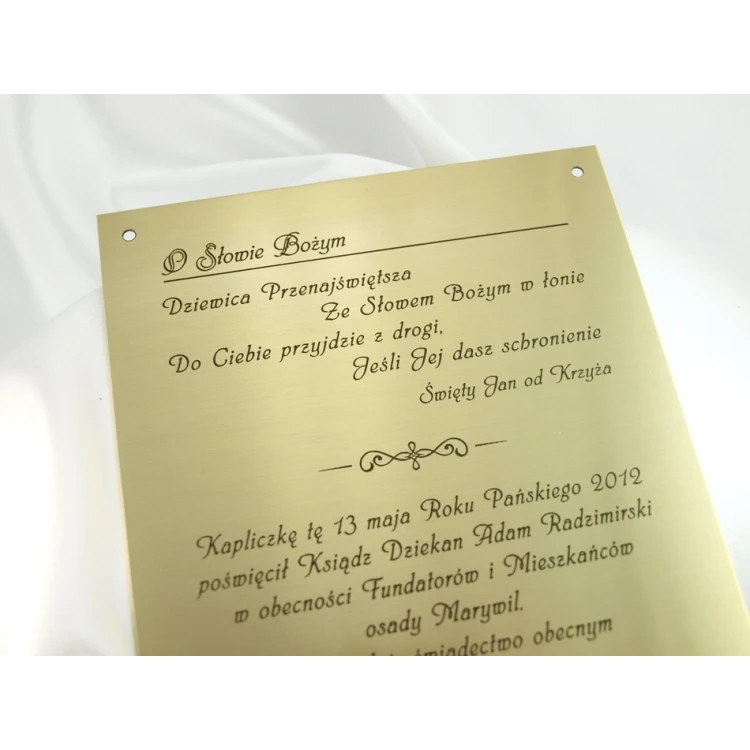 O Słowie Bożym
Dziewica Przenajświętsza
Ze Słowem Bożym w łonie
Do Ciebie przyjdzie z drogi,
Jeśli Jej dasz schronienie
Święty Jan od Krzyża
Kapliczkę tę 13 maja Roku Pańskiego 2012
poświęcił Ksiądz Dziekan Adam Radzimirski
w obecności Fundatorów i Mieszkańców
osady Marywil.
świadectwo obecnym